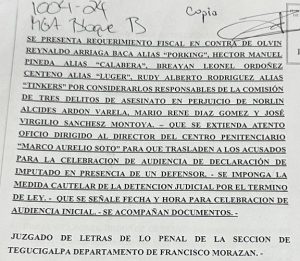 1004-24
Copia
MGA Bloque B
SE PRESENTA REQUERIMIENTO FISCAL EN CONTRA DE OLVIN
REYNALDO ARRIAGA BACA ALIAS “PORKING”, HECTOR MANUEL
PINEDA ALIAS “CALABERA”, BREAYAN LEONEL ORDOÑEZ
CENTENO ALIAS “LUGER”, RUDY ALBERTO RODRIGUEZ ALIAS
“TINKERS” POR CONSIDERARLOS RESPONSABLES DE LA COMISIÓN
DE TRES DELITOS DE ASESINATO EN PERJUICIO DE NORLIN
ALCIDES ARDON VARELA, MARIO RENE DIAZ GOMEZ Y JOSÉ
VIRGILIO SANCHEZ MONTOYA. — QUE SE EXTIENDA ATENTO
OFICIO DIRIGIDO AL DIRECTOR DEL CENTRO PENITENCIARIO
“MARCO AURELIO SOTO” PARA QUE TRASLADEN A LOS ACUSADOS
PARA LA CELEBRACION DE AUDIENCIA DE DECLARACIÓN DE
IMPUTADO EN PRESENCIA DE UN DEFENSOR. - SE IMPONGA LA
MEDIDA CAUTELAR DE LA DETENCION JUDICIAL POR EL TERMINO
DE LEY. - QUE SE SEÑALE FECHA Y HORA PARA CELEBRACION DE
AUDIENCIA INICIAL. - SE ACOMPAÑAN DOCUMENTOS. -
JUZGADO DE LETRAS DE LO PENAL DE LA SECCION DE
TEGUCIGALPA DEPARTAMENTO DE FRANCISCO MORAZAN. -